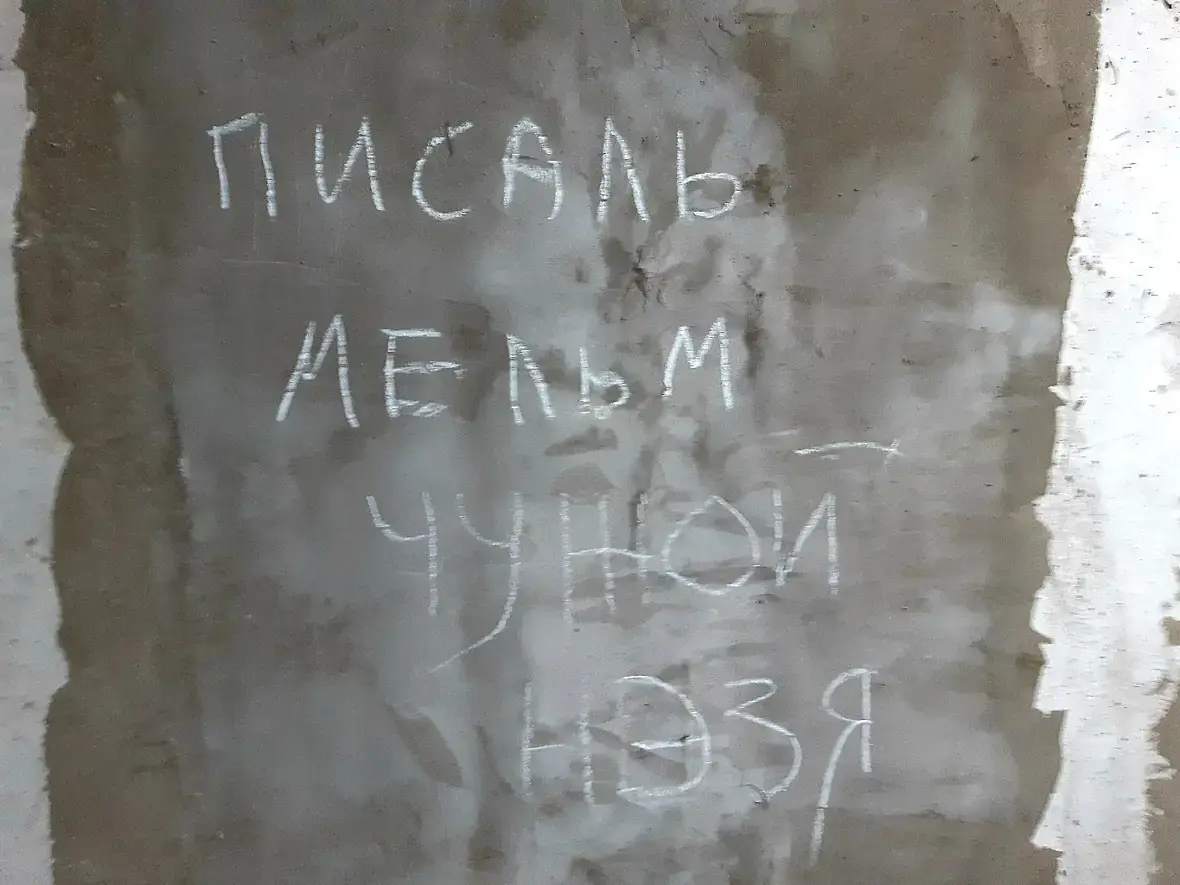 ПИСАЛЬ
МЕЛЬМ
ЧУНОЙ
НЭЗЯ